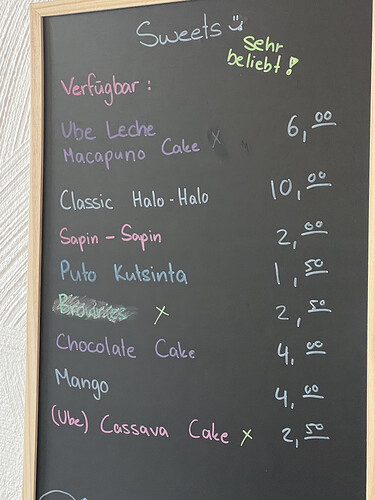 Sweets
Sehr
beliebt!
Verfügbar:
Ube Leche
Macapuno Cake x 6,00
Classic Halo-Halo 10,00
Sapin-Sapin 2,00
Puto Kutsinta 1,50
Brownies x 2,50
Chocolate Cake 4,00
Mango 4,00
(Ube) Cassava Cake x 2,50